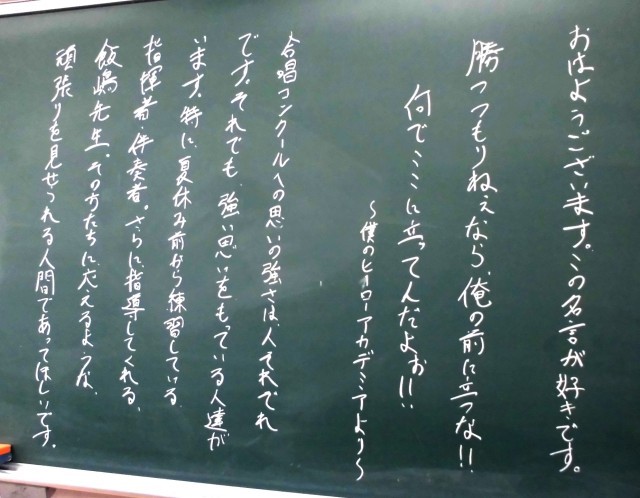 おはようございます。この名言が好きです。
勝つつもりねぇなら、俺の前に立つな!!
何でここに立ってんだよぉ!!
～僕のヒーローアカデミアより～
合唱コンクールへの思いの強さは、人それぞれ
です。それでも、強い思いをもっている人達が
います。特に、夏休み前から練習している
指揮者・伴奏者。さらに指導してくれる、
飯嶋先生。その方たちに応えるような、
頑張りを見せつれる人間であってほしいです。